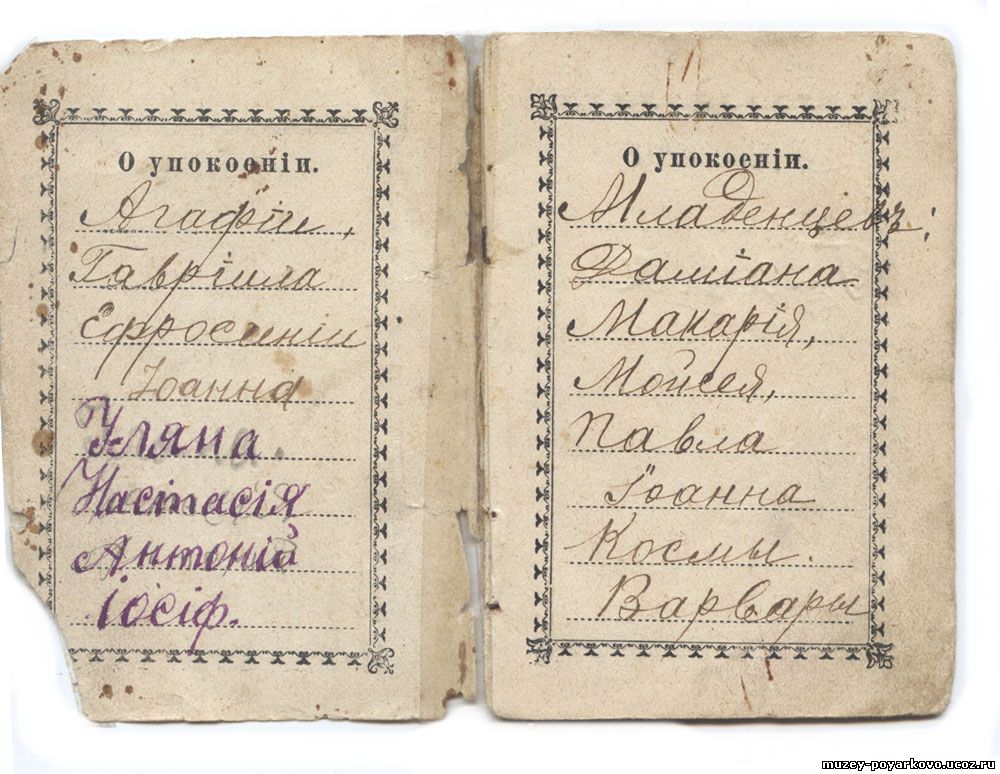 О упокоеніи.
Агафіи,
Гавріила
Ефросиніи
Іоанна
Уляна.
Настасія
Антоній
Іосіф.
О упокоеніи.
Младенцевъ:
Даміана
Макарія,
Мойсея,
Павла
Іоанна
Космы.
Варвары
muzey-poyarkovo.ucoz.ru